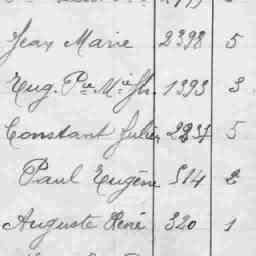 Jean Marie 2398 5
Eug. Pre Mie Jh. 1393 3
Constant Julien 2237 5
Paul Eugène 514 2
Auguste René 320 1